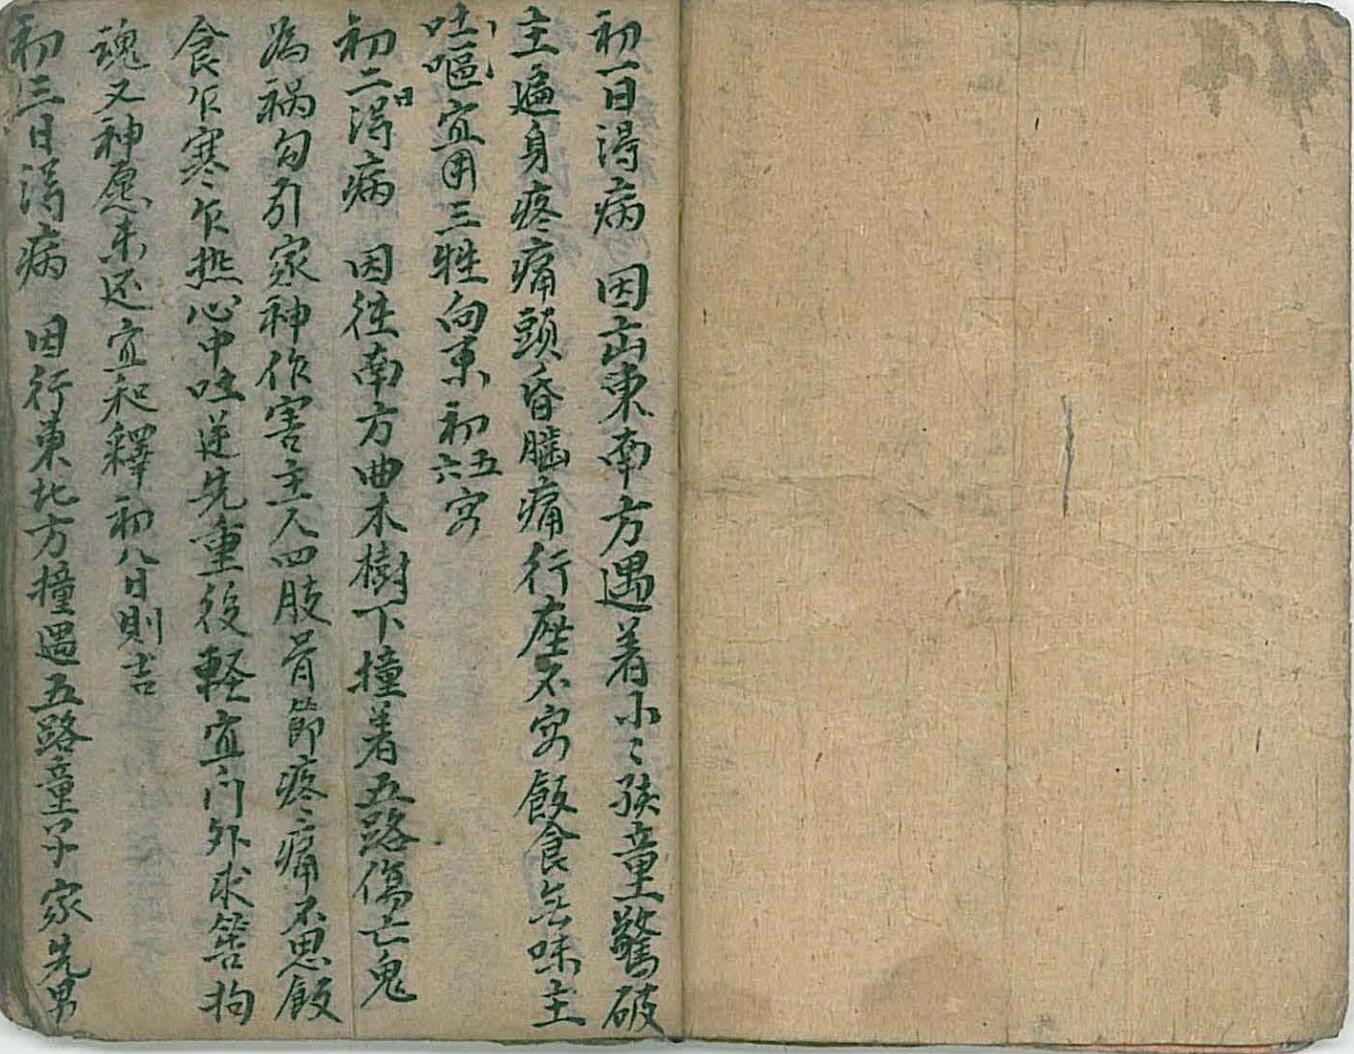 初一日得病　因出東南方遇着小〻孩童驚破
主遍身疼痛頭昏腦痛行座不安飯食無味主
吐嘔宜用三牲向東初五六安
初二日得病　因往南方曲木樹下撞着五路傷亡鬼
為禍勾引家神作害主人四肢骨節疼〻痛不思飯
食乍寒〻乍热心中吐逆先重後軽宜门外求筶拘
魂又神愿未还宜和釋初八日則吉
初三日得病　因行東北方撞遇五路童子家先男